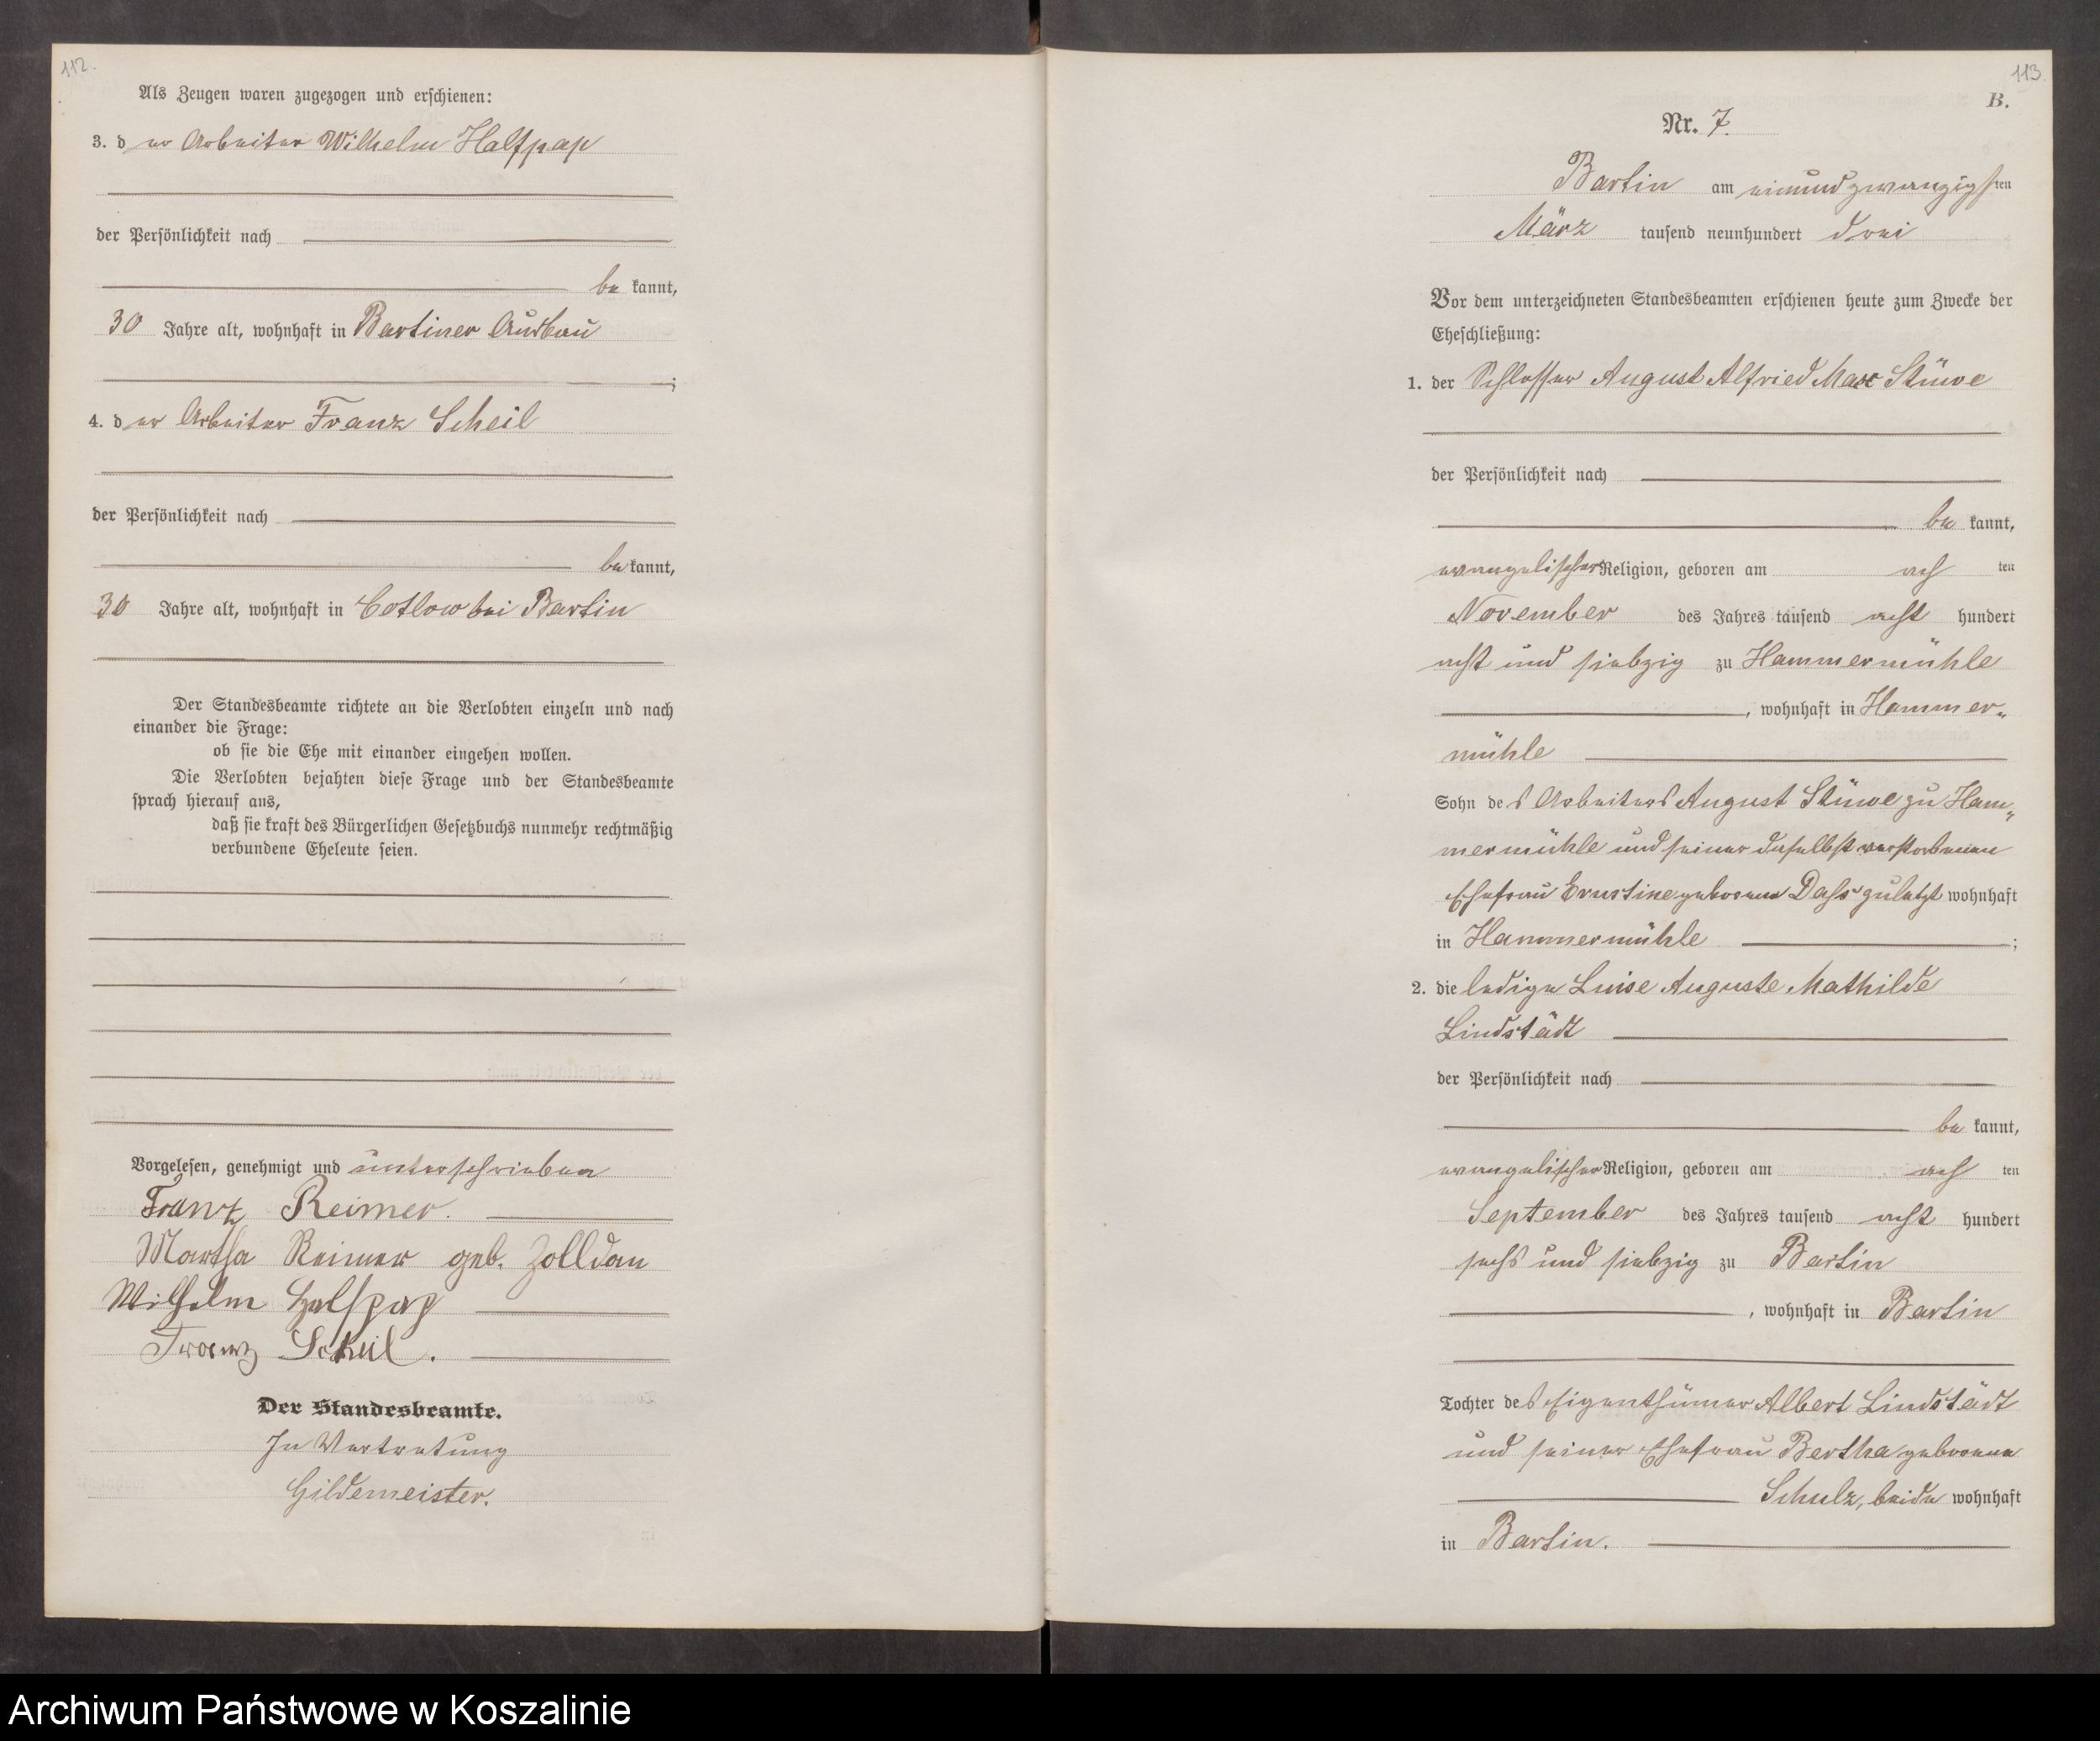 112.
Als Zeugen waren zugezogen und erschienen:
3. der Arbeiter Wilhelm Halfpap
der Persönlichkeit nach
be kannt,
30 Jahre alt, wohnhaft in Bartiner Ausbau
;
4. der Arbeiter Franz Scheil
der Persönlichkeit nach
be kannt,
30 Jahre alt, wohnhaft in Cotlow bei Bartin
Der Standesbeamte richtete an die Verlobten einzeln und nach
einander die Frage:
ob sie die Ehe mit einander eingehen wollen.
Die Verlobten bejahten diese Frage und der Standesbeamte
sprach hierauf aus,
daß sie kraft des Bürgerlichen Gesetzbuchs nunmehr rechtmäßig
verbundene Eheleute seien.
Vorgelesen, genehmigt und unterschrieben
Franz Reimer.
Martha Reimer geb. Zolldan
Wilhelm Halfpap
Franz Scheil.
Der Standesbeamte.
In Vertretung
Gildemeister.
113.
B.
Nr. 7.
Bartin am einundzwanzigsten
März tausend neunhundert drei
Vor dem unterzeichneten Standesbeamten erschienen heute zum Zwecke der
Eheschließung:
1. der Schlosser August Alfried Max Stüwe
der Persönlichkeit nach
be kannt,
evangelischer Religion, geboren am ach ten
November des Jahres tausend acht hundert
acht und siebzig zu Hammermühle
, wohnhaft in Hammer„
mühle
Sohn des Arbeiters August Stüwe zu Ham„
mermühle und seiner daselbst verstorbenen
Ehefrau Ernstine geborene Dahs zuletzt wohnhaft
in Hammermühle ;
2. die ledige Luise Auguste Mathilde
Lindstädt
der Persönlichkeit nach
be kannt,
evangelischer Religion, geboren am ach ten
September des Jahres tausend acht hundert
sechs und siebzig zu Bartin
, wohnhaft in Bartin
Tochter des Eigenthümer Albert Lindstädt
und seiner Ehefrau Bertha geborene
Schulz, beide wohnhaft
in Bartin.
Archiwum Państwowe w Koszalinie